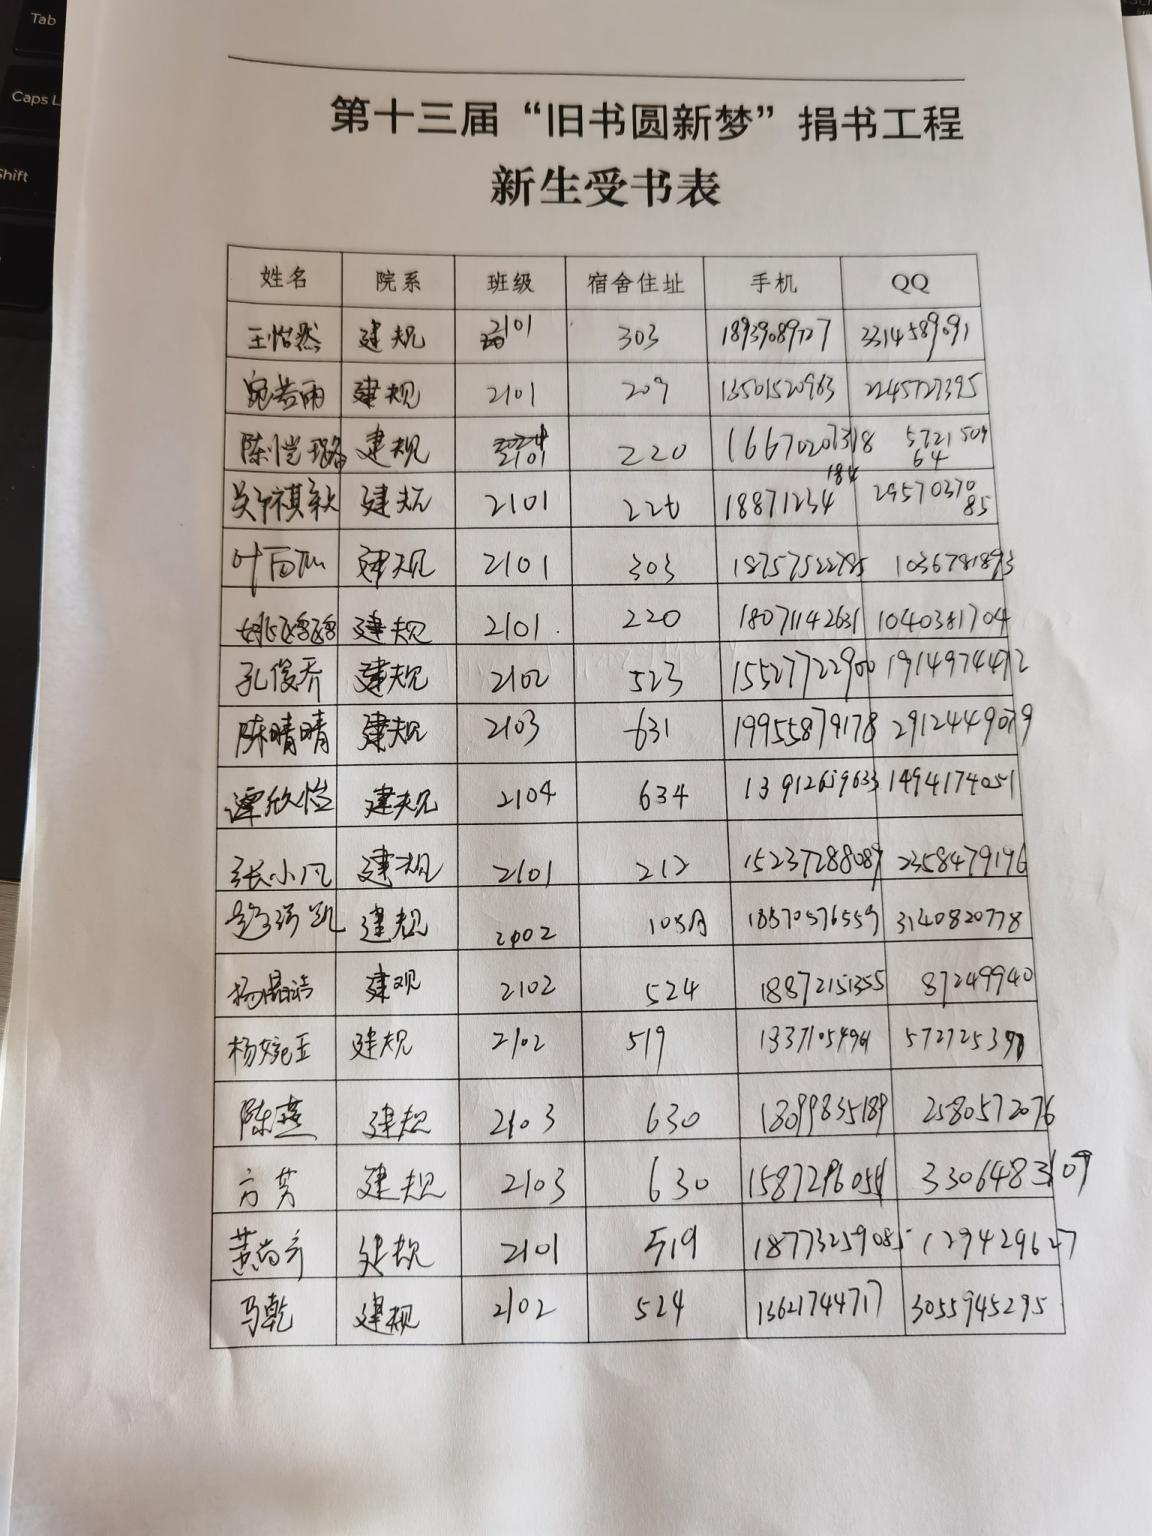 第十三届“旧书圆新梦”捐书工程
新生受书表
姓名 院系 班级 宿舍住址 手机 QQ
王怡然 建规 2101 303 18939089727 3314589091
宛若雨 建规 2101 209 13501520963 2245727395
陈恺璐 建规 2101 220 16670207318 572150964
建规 2101 220 18871234184 2957037085
叶 建规 2101 303 18757522785 1036781893
姚 建规 2101 220 18071142631 1040381704
孔俊乔 建规 2102 523 15527722900 1914974492
陈晴晴 建规 2103 631 19955879178 2912449079
谭欣恺 建规 2104 634 13912659633 1494174051
张小凡 建规 2101 212 15237288089 2358479196
建规 18570576559 3140820778
杨 建规 2102 524 18872151355 87249940
杨婉玉 建规 2102 519
陈燕 建规 2103 630 18099835189 2580572076
方芳 建规 2103 630 3306483109
黄尚齐 建规 2101 519 18773259085 129429627
马乾 建规 2102 524 13621744717 3055945295
Tab
Caps L
Shift